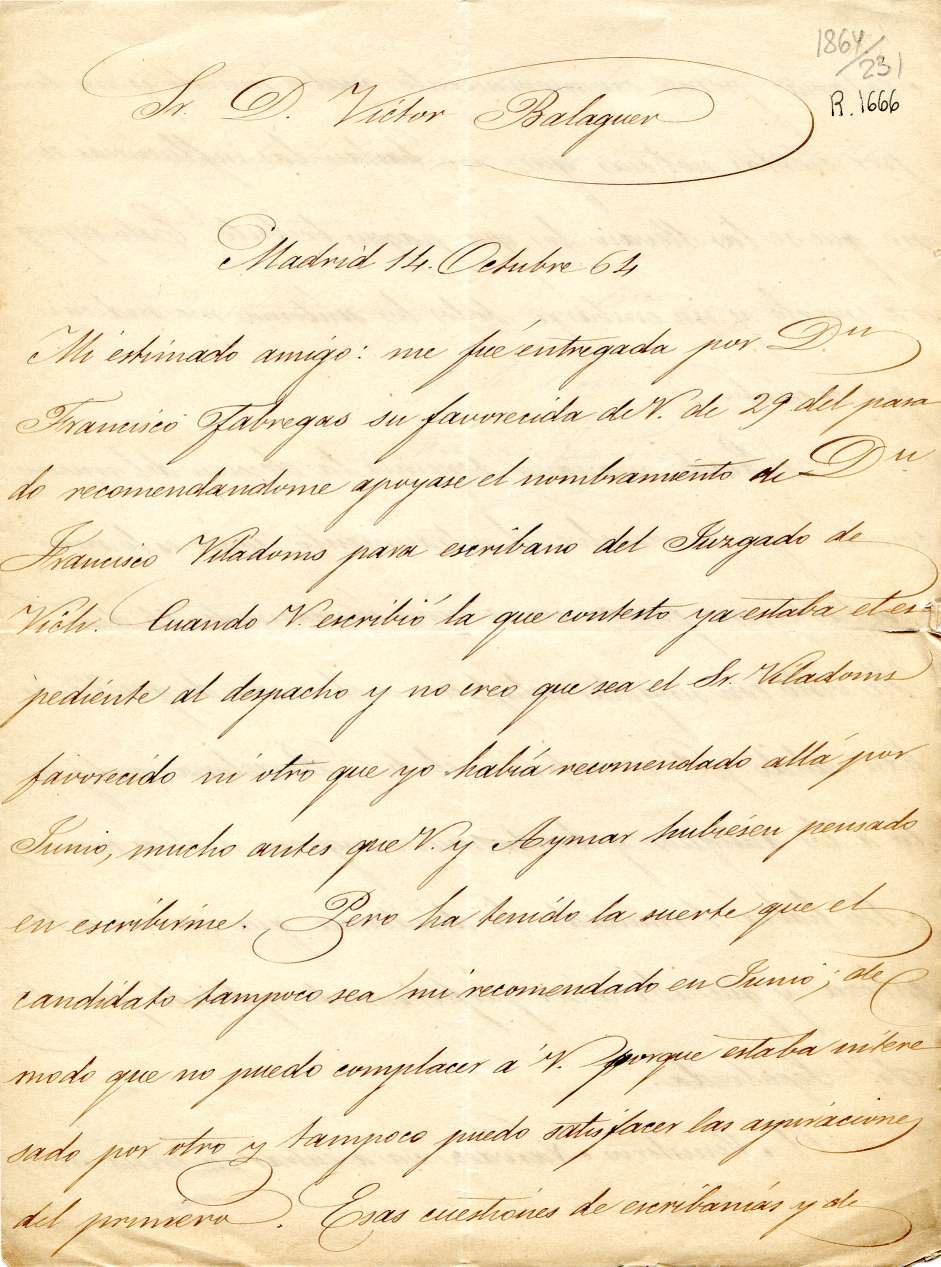 1864/231
R. 1666
Sr. D. Victor Balaguer
Madrid 14. Octubre 64
Mi estimado amigo: me fué entregada por Dn
Francisco Fabregas su favorecida de V. de 29 del pasa
do recomendandome apoyase el nombramiento de Dn
Francisco Viladoms para escribano del Juzgado de
Vich. Cuando V. escribió la que contesto ya estaba el es-
pediente al despacho y no creo que sea el Sr. Viladoms
favorecido ni otro que yo había recomendado allá por
Junio, mucho antes que V. y Aymar hubiesen pensado
en escribirme. Pero ha tenido la suerte que el
candidato tampoco sea mi recomendado en Junio; de
modo que no puedo complacer á V. porque estaba intere
sado por otro y tampoco puedo satisfacer las aspiraciones
del primero. Esas cuestiones de escribanías y de